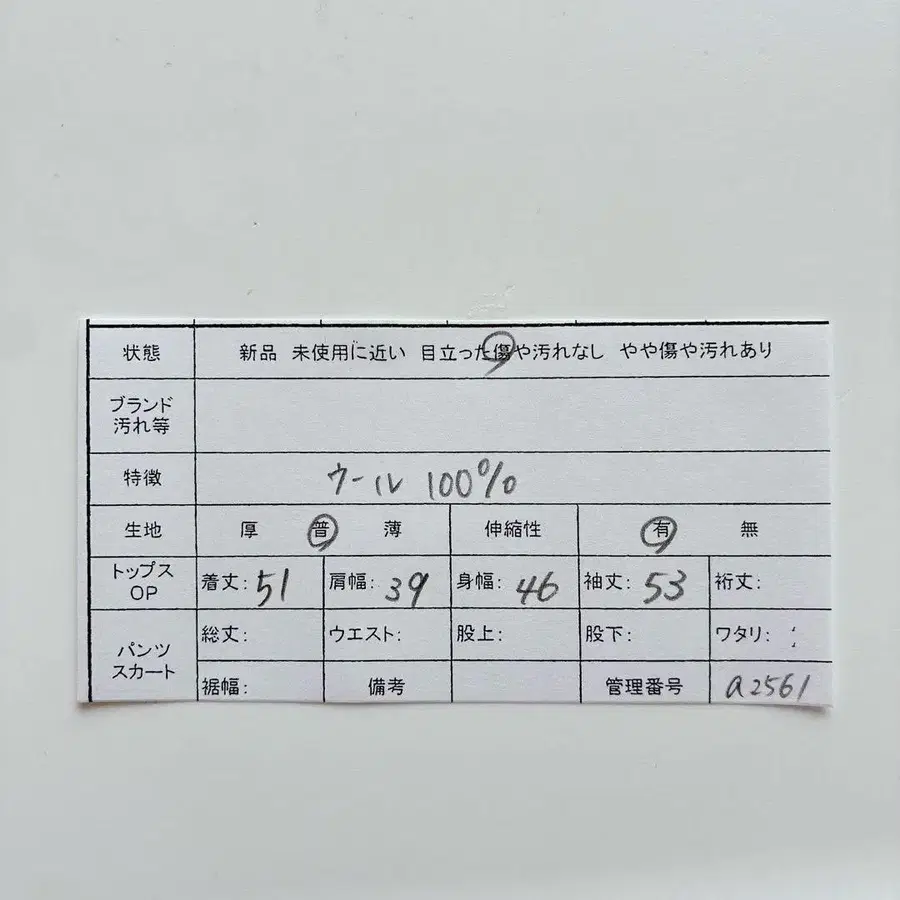 状態 新品 未使用に近い 目立った傷や汚れなし やや傷や汚れあり
ブランド
汚れ等
特徴 ウール 100%
生地 厚 普 薄 伸縮性 有 無
トップス
OP
着丈: 51 肩幅: 39 身幅: 46 袖丈: 53 裄丈:
パンツ
スカート
総丈: ウエスト: 股上: 股下: ワタリ:
裾幅: 備考 管理番号 a2561